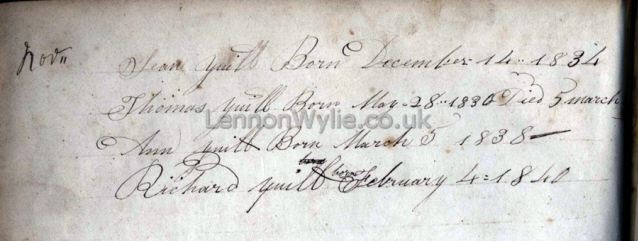 Novr Jean Yuill Born December 14 = 1834
Thomas Yuill Born May - 28 = 1836 Died 5 march
LennonWylie.co.uk
Ann Yuill Born March 5 1838 -
Richard Yuill born February 4 = 1840